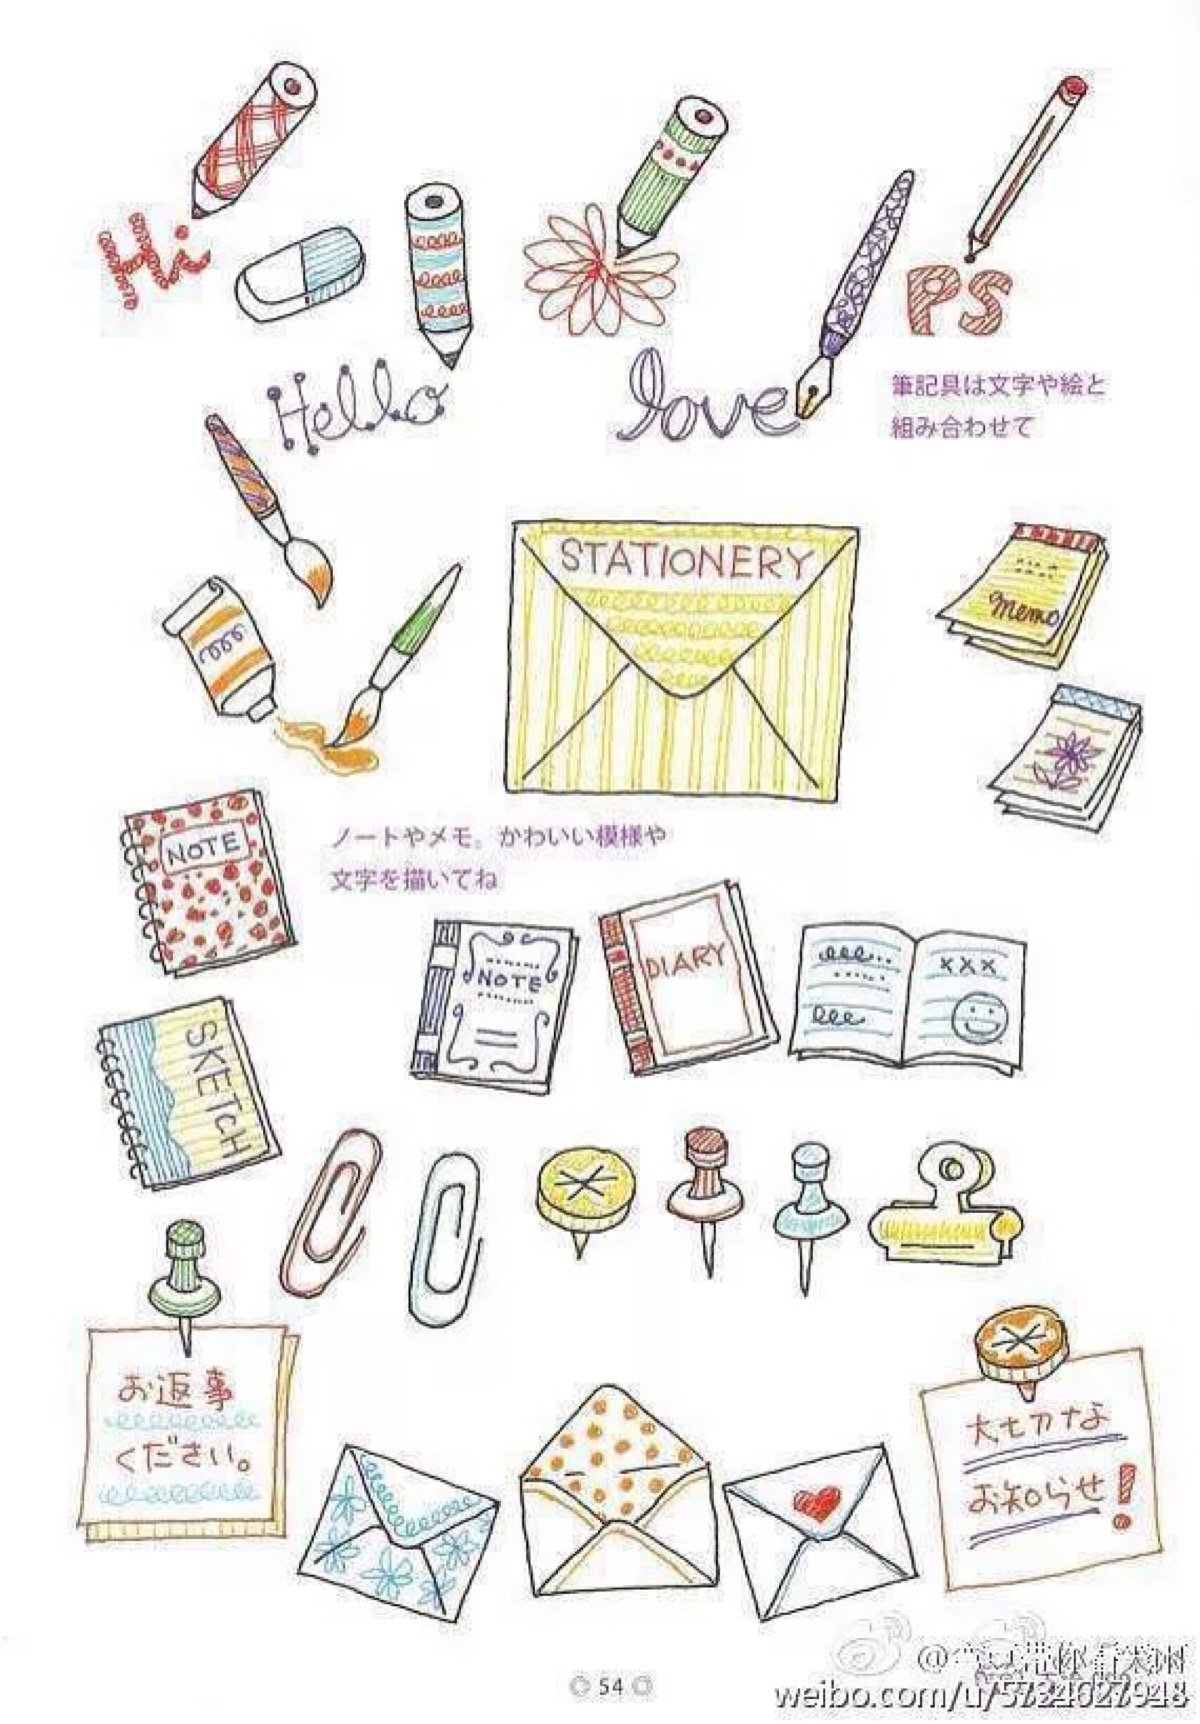 Hi
Hello
love
PS
筆記具は文字や絵と
組み合わせて
STATIONERY
Memo
NOTE
ノートやメモ。かわいい模様や
文字を描いてね
NOTE
DIARY
XXX
SKETCH
お返事
ください。
大切な
お知らせ!
54
weibo.com/u/5724627948